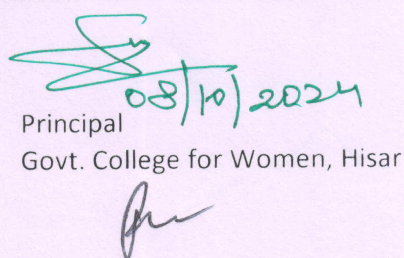 08/10/2024
Principal
Govt. College for Women, Hisar